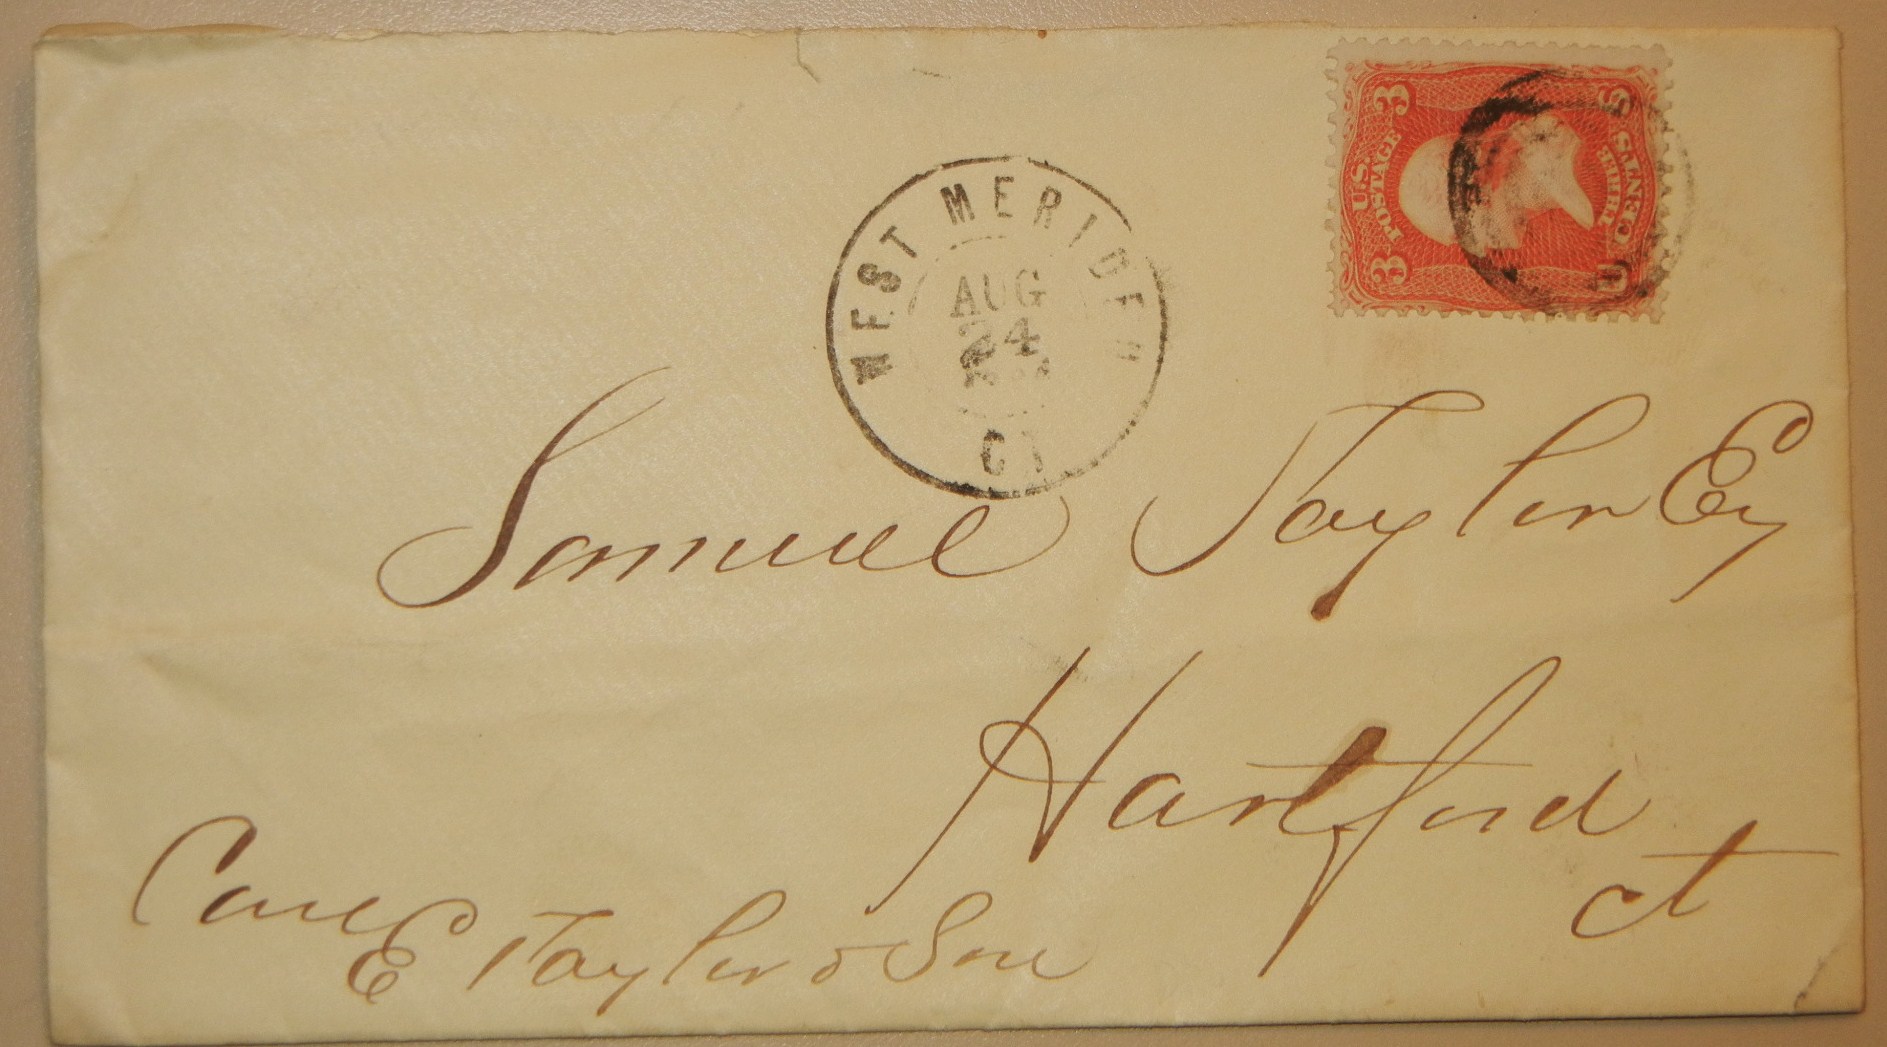 U.S. POSTAGE
3 3
THREE CENTS
U S
WEST MERIDEN
AUG
24
CT
Samuel Taylor Esq
Hartford
Ct
Care
E Taylor & Son